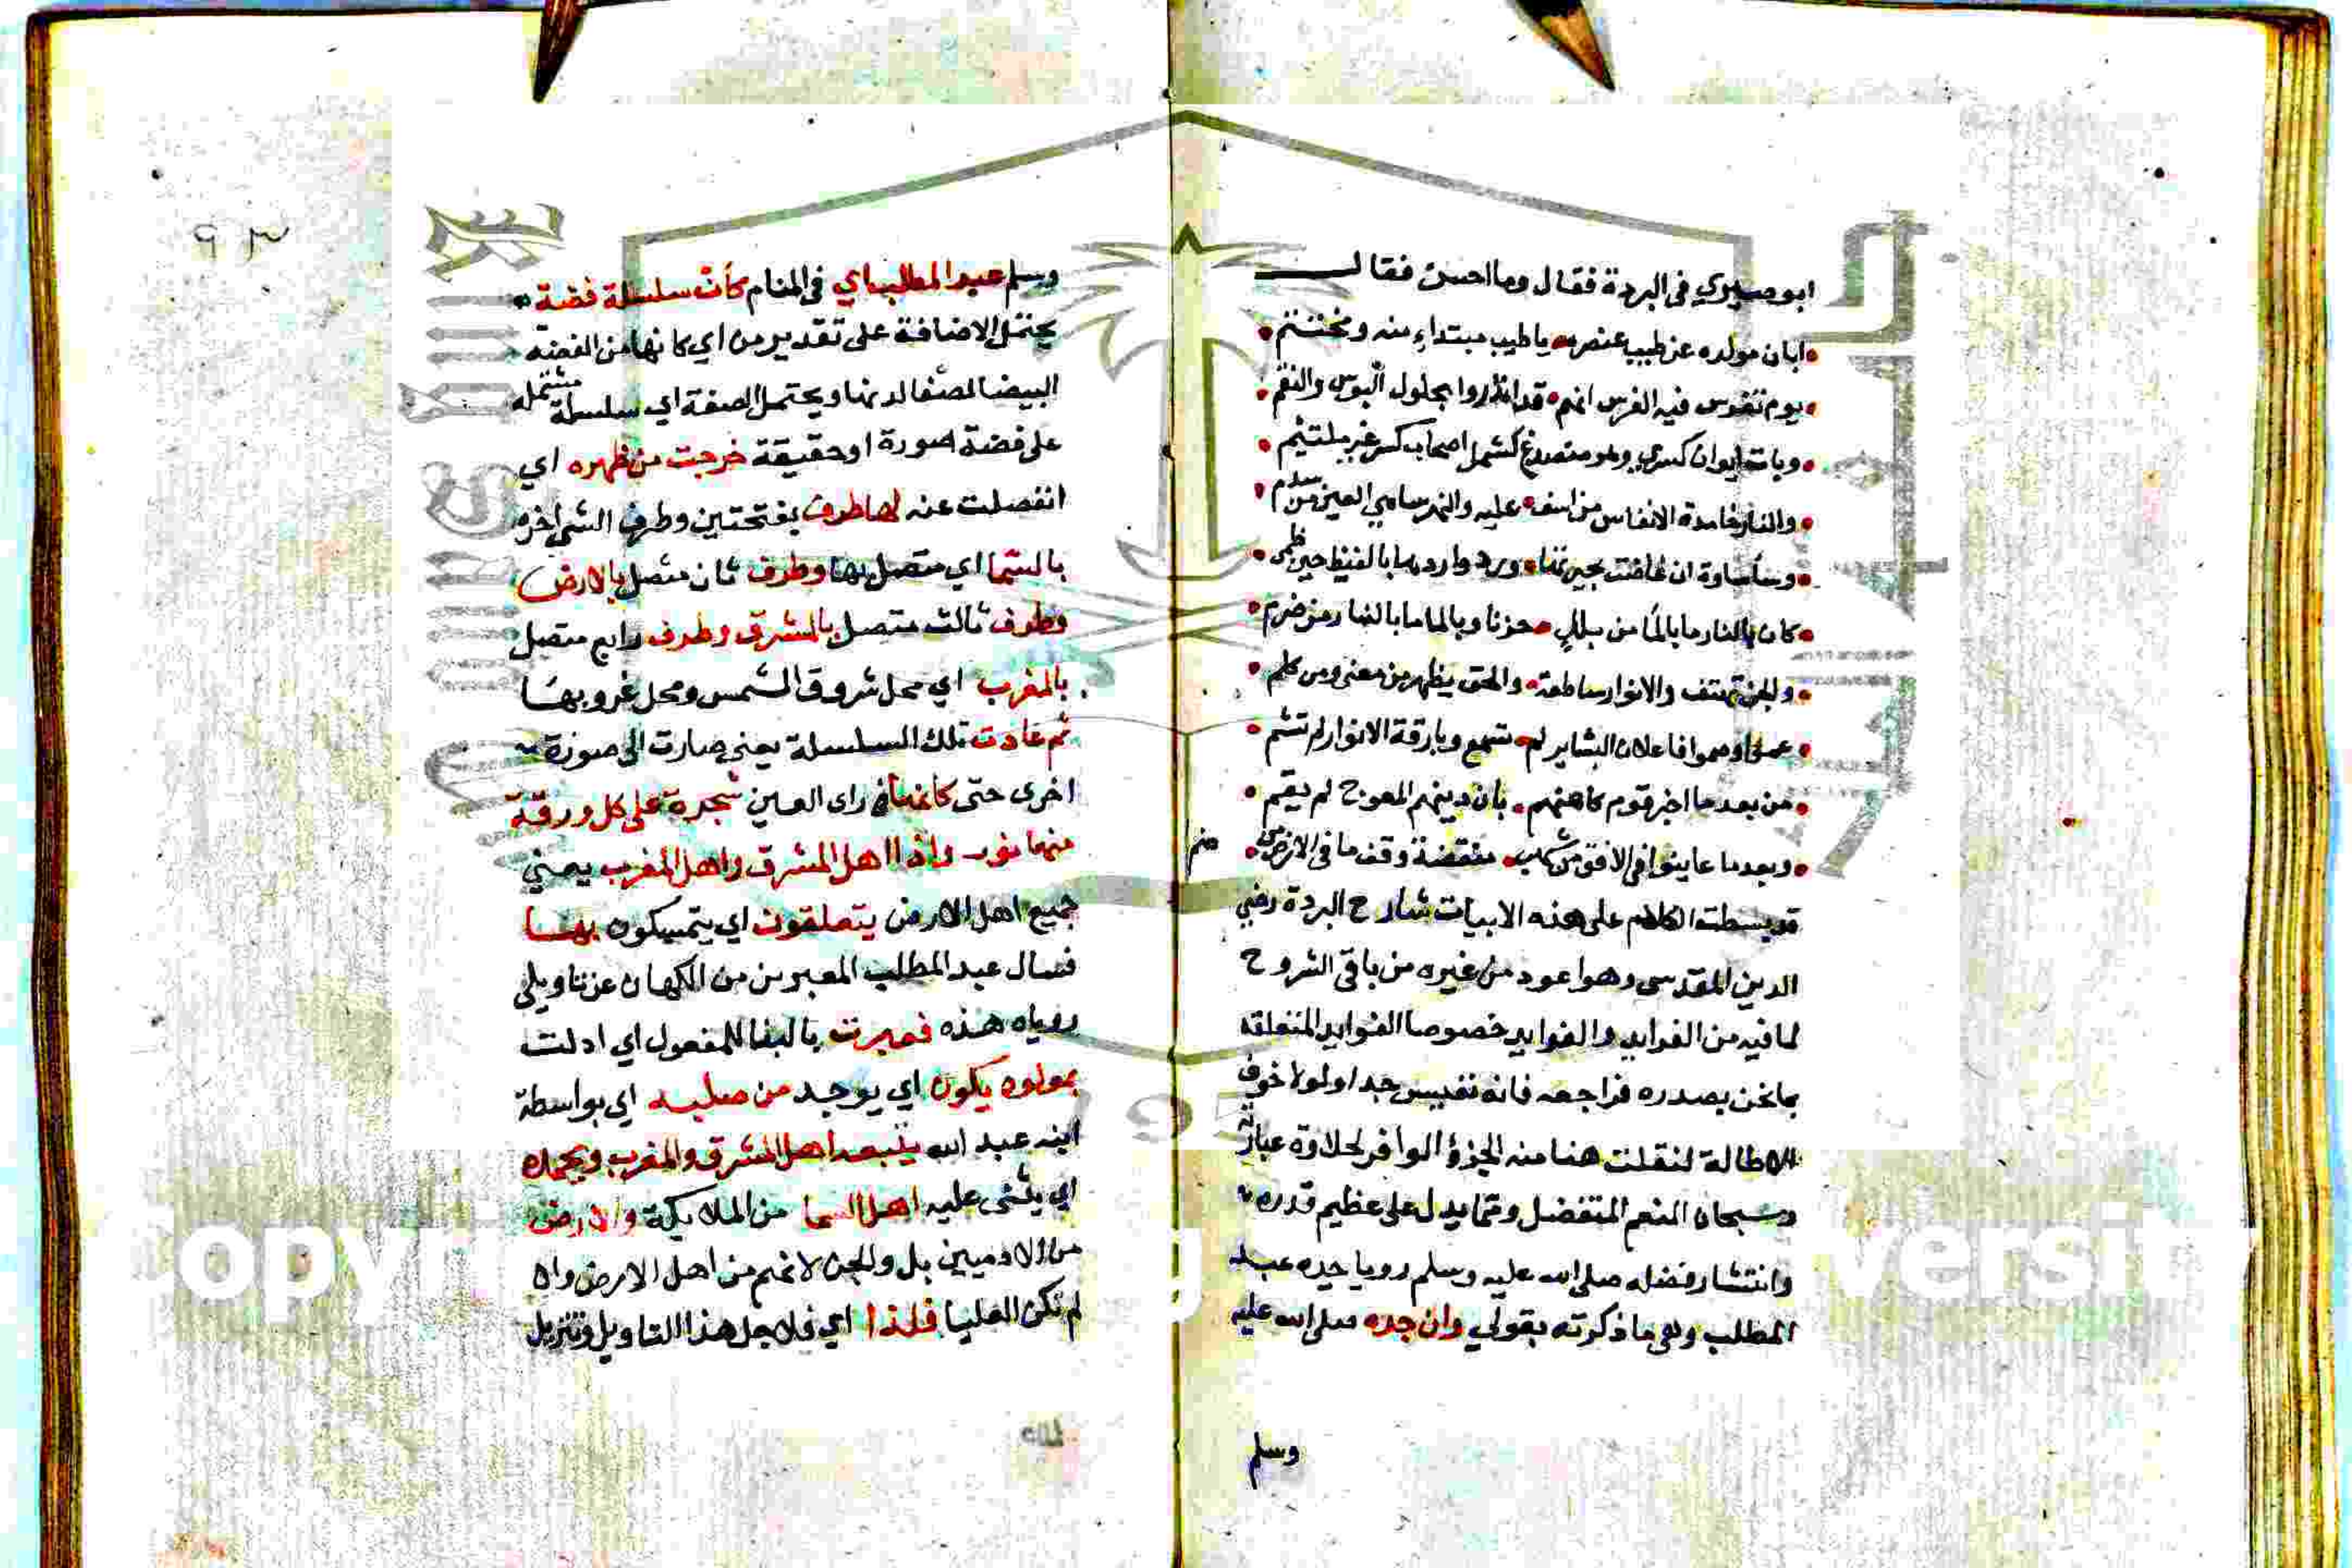 ابو صيري في البردة فقال وما احسن فقال
ابان مولده عن طيب عنصره يا طيب مبتداء منه ومختتم
يوم تفرس فيه الفرس انهم قد انذروا بحلول البوس والنقم
وبات ايوان كسرى وهو منصدع كشمل اصحاب كسرى غير ملتئم
والنار خامدة الانفاس من اسف عليه والنهر ساهي العين من سدم
وسأ ساوة ان غاضت بحيرتها ورد واردها بالغيظ حين ظمي
كان بالنار ما بالما من بلل حزنا وبالما ما بالنار من ضرم
والجن تهتف والانوار ساطعة والحق يظهر من معنى ومن كلم
عموا وصموا فاعلان البشاير لم تسمع وبارقة الانوار لم تشم
من بعد ما اخبر قوم كاهنهم بان دينهم المعوج لم يقم
وبعد ما عاينوا في الافق من شهب منقضة وقف ما في الارض من صنم
قد بسطت الكلام على هذه الابيات شارح البردة رضي
الدين المقدسي وهو اعود من غيره من باقي الشروح
لما فيه من الفرايد والفوايد خصوصا الفوايد المتعلقة
بما نحن بصدره فراجعه فانه نفيس جدا ولولا خوف
الاطالة لنقلت هنا منه الجزؤ الوافر لحلاوة عبارته
وسبحان المنعم المتفضل ومما يدل على عظيم قدره
وانتشار فضله صلى الله عليه وسلم رويا جده عبد
المطلب وهي ما ذكرته بقولي وان جده صلى الله عليه
وسلم
٩٣
وسلم عبد المطلب اي في المنام كأن سلسلة فضة
يحتمل الاضافة على تقدير من اي كانها من الفضة
البيضا لصفا لونها ويحتمل الصفة اي سلسلة مشتملة
على فضة صورة او حقيقة خرجت من ظهره اي
انفصلت عنه لها طرف بفتحتين وطرف الشي اخره
بالسما اي متصل بها وطرف ثان متصل بالارض
وطرف ثالث متصل بالمشرق وطرف رابع متصل
بالمغرب اي محل شروق الشمس ومحل غروبها
ثم عادت تلك السلسلة يعني صارت الى صورة
اخرى حتى كانها في راى العين شجرة على كل ورقة
منها نور واذا اهل المشرق واهل المغرب يعني
جميع اهل الارض يتعلقون اي يتمسكون بها
فسال عبد المطلب المعبرين من الكهان عن تاويل
روياه هذه فعبرت بالبنا للمفعول اي ادلت
بمولود يكون اي يوجد من صلبه اي بواسطة
ابنه عبد الله يتبعه اهل المشرق والمغرب ويحمده
اي يثنى عليه اهل السما من الملايكة والارض
من الادميين بل والجن لانهم من اهل الارض وان
لم تكن العليا فلذا اي فلاجل هذا التاويل وتنزيل